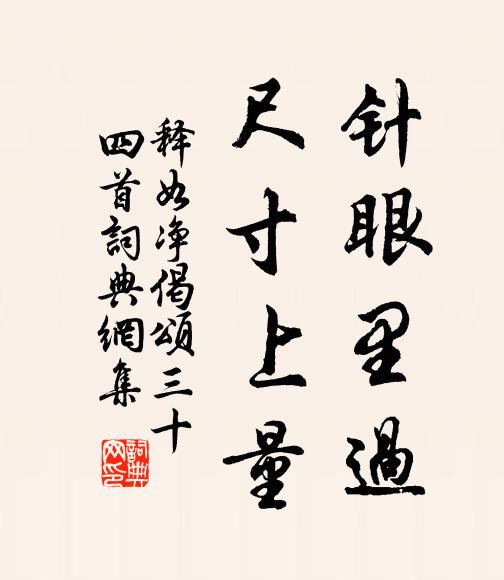 针眼里過
尺寸上量
释如净偈頌三十
四首詞典網集
詞典网印